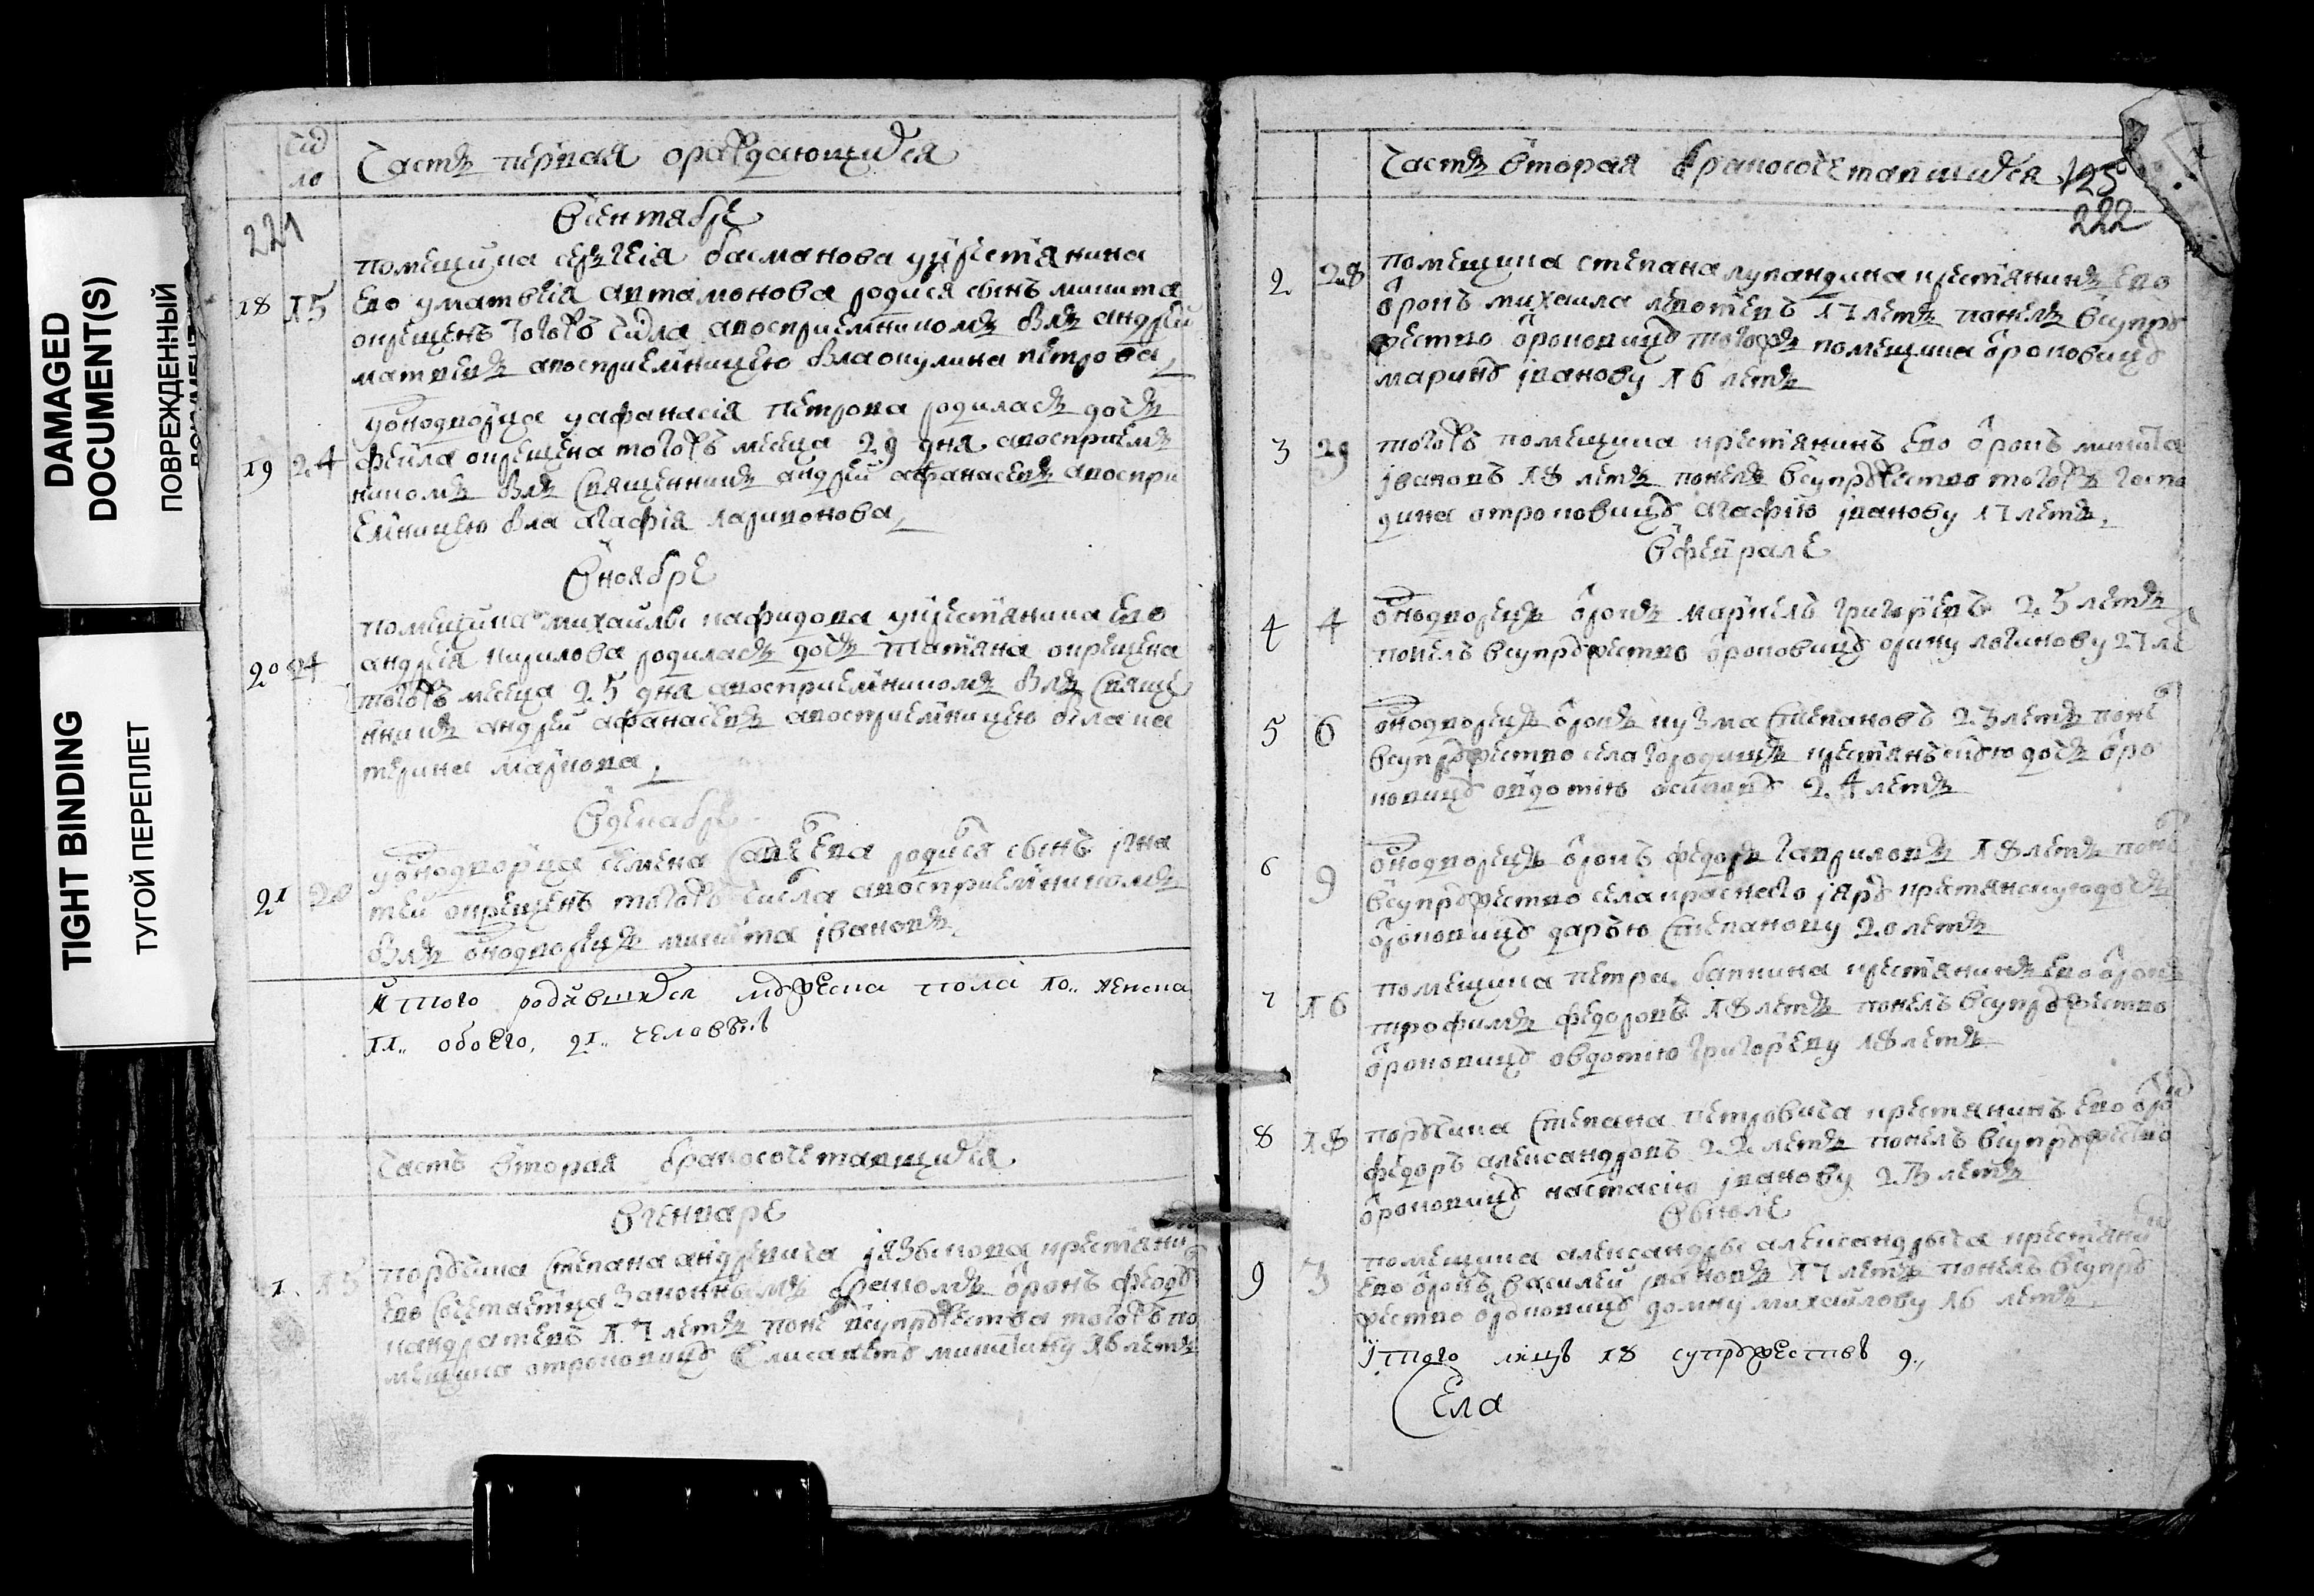 DAMAGED
DOCUMENT(S)
ПОВРЕЖДЕННЫЙ
TIGHT BINDING
ТУГОЙ ПЕРЕПЛЕТ
чис
ло
Часть первая о раждающихся
221
Всентябре
помещика сергеія басманова укрестянина
18 15 ево уматвеія автамонова родися сынъ микита
окрещенъ тогожъ числа авосприемникомъ былъ андрей
матвевъ авосприемницею была окулина петрова
уоднодворца уафанасія петрова родилась дочь
19 24 фекла окрещена тогожъ месеца 29 дня авосприем
никомъ былъ священникъ андрей афанасевъ авоспри
емницею была агафія ларионова
Вноябре
помещика михаилы кафидова укрестянина ево
20 24 андрея кирилова родилась дочь татяна окрещена
тогожъ месеца 25 дня авосприемникомъ былъ свяще
нникъ андрей афанасевъ авосприемницею была ка
терина маркова
Вдекабре
уоднодворца семена савева родися сынъ игна
21 28 теи окрещенъ тогожъ числа авосприемникомъ
былъ однодворецъ микита івановъ
Итого родившихся мужеска пола 10 женска
11 обоего 21 человекъ
Часть вторая бракосочетавшихся
Вгенваре
1 15 порутчика степана андревича языкова крестяни
ево сочетаетца законнымъ бракомъ отрокъ
кандратевъ 17 летъ понелъ всупружества тогожъ по
мещика отроковицу елисавету микитину 16 летъ
Часть вторая бракосочетавшихся 125
222
2 28 помещика степана лупандина крестянинъ ево
отрокъ михаила леонтевъ 17 летъ понелъ всупру
жество отроковицу тогожъ помещика отроковицу
марину іванову 16 летъ
3 29 тогожъ помещика крестянинъ ево отрокъ микита
івановъ 18 летъ понелъ всупружество тогожъ госпо
дина отроковицу агафію іванову 17 летъ
Вфеврале
4 4 однодворецъ отрокъ маркелъ григоревъ 25 летъ
понелъ всупружество отроковицу орину логинову 27 ле
5 6 однодворецъ отрокъ кузма степановъ 23 летъ понел
всупружество села городищъ крестянскую дочь отро
ковицу овдотію осипову 24 летъ
6 9 однодворецъ отрокъ федоръ гавриловъ 18 летъ понел
всупружество села краснаго яру крестянскую дочь
отроковицу дарью степанову 20 летъ
7 16 помещика петра бапкина крестянинъ ево отрокъ
трофимъ федоровъ 18 летъ понелъ всупружество
отроковицу овдотию григореву 18 летъ
8 18 порутчика степана петровича крестянинъ ево отрок
федоръ александровъ 22 летъ понелъ всупружество
отроковицу настасію іванову 23 летъ
Виюле
помещика александры александрыча крестянин
9 3 ево отрокъ василеи івановъ 17 летъ понелъ всупру
жество отроковицу домну михаилову 16 летъ
Итого лицъ 18 супружествъ 9
Села